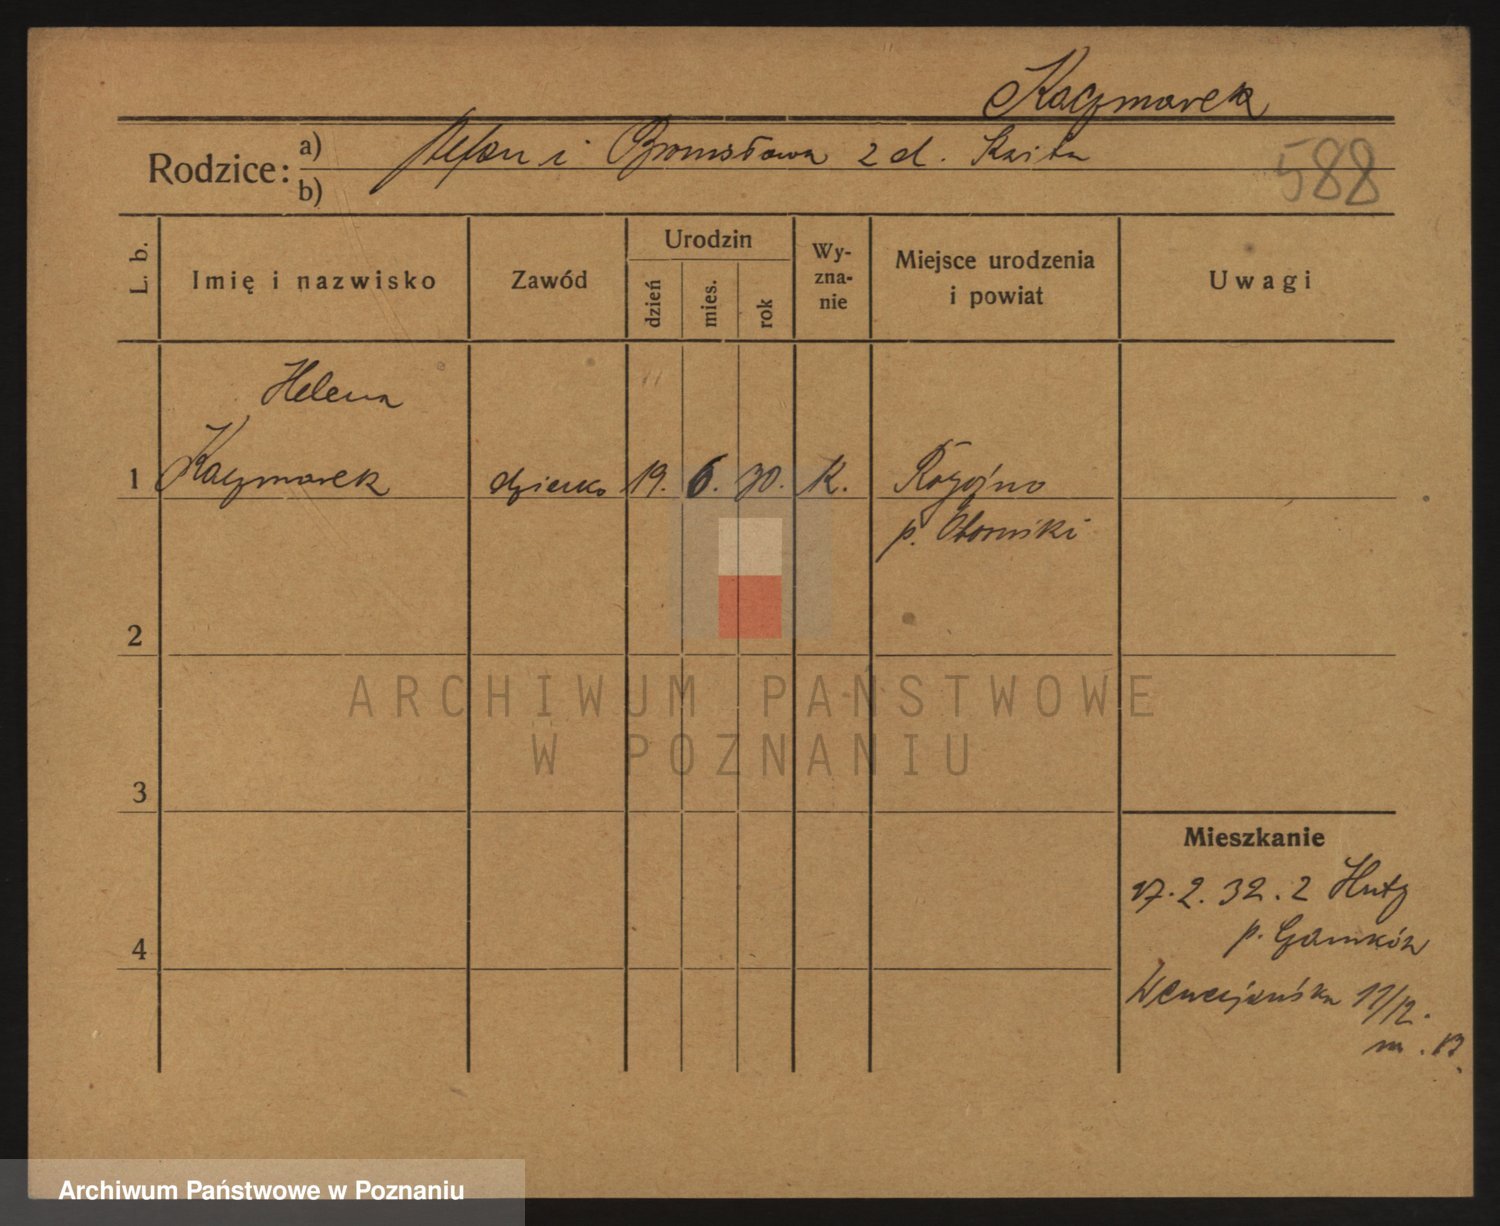 Kaczmarek
Rodzice: a) Stefan i Bronisława z d. Kaita
b)
588
L. b.
Imię i nazwisko
Zawód
Urodzin
dzień
mies.
rok
Wy-
zna-
nie
Miejsce urodzenia
i powiat
Uwagi
Helena
1 Kaczmarek dziecko 19. 6. 30. K. Rogoźno
p. Oborniki
2
ARCHIWUM PAŃSTWOWE
W POZNANIU
3
Mieszkanie
17.2.32. z Huty
p.
4
Wenecjańska 11/12.
m. 13.
Archiwum Państwowe w Poznaniu